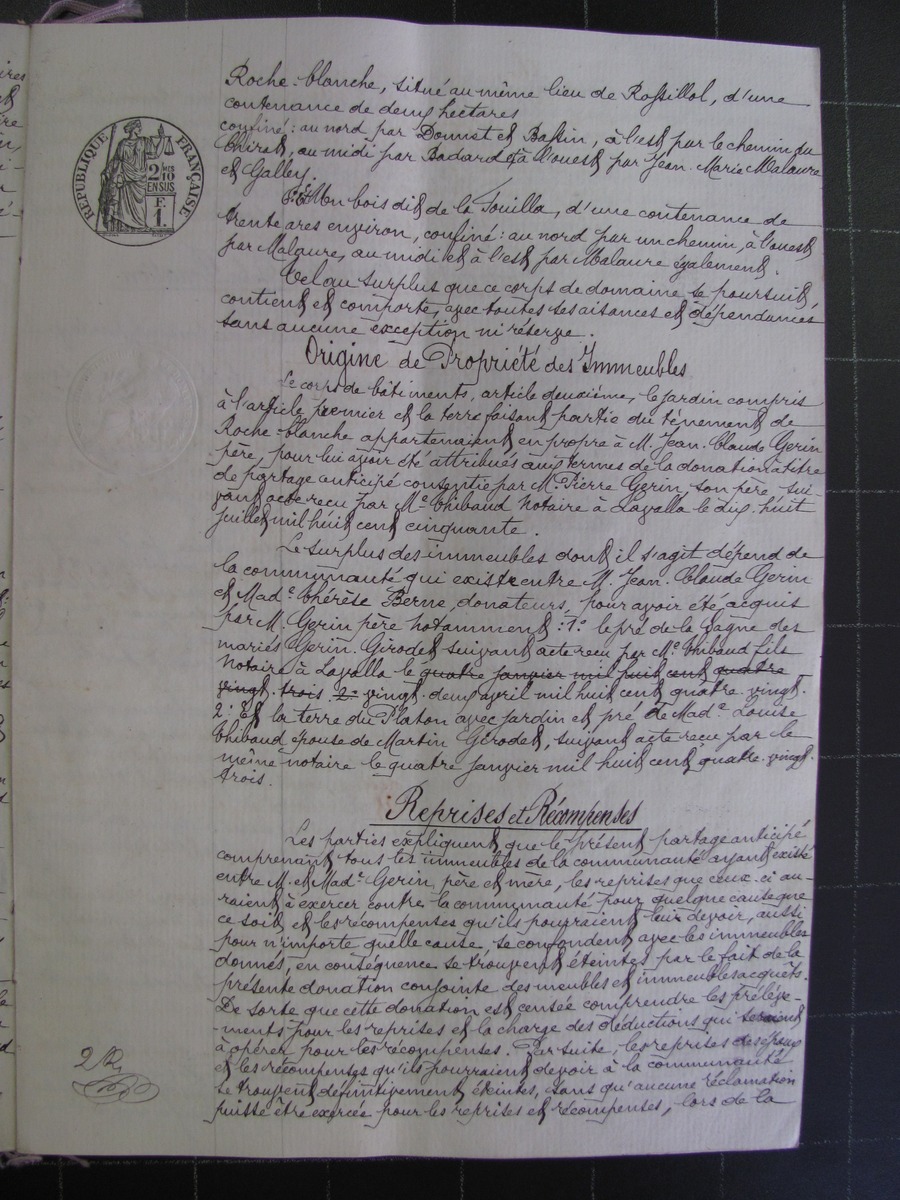 RÉPUBLIQUE FRANÇAISE
2 MES 10
EN SUS
F.
1.
Roche-blanche, situé au même lieu de Rossillol, d'une
contenance de deux hectares
confiné : au nord par Donnet et Bassin, à l'est par le chemin du
Chirat, au midi par Badard et à l'ouest par Jean Marie Malaure
et Galley.
Un bois dit de la Jouilla, d'une contenance de
trente ares environ, confiné : au nord par un chemin, à l'ouest
par Malaure, au midi et à l'est par Malaure également.
Tel au surplus que ce corps de domaine se poursuit,
contient et comporte, avec toutes ses aisances et dépendances
sans aucune exception ni réserve.
Origine de Propriété des Immeubles
Le corps de bâtiments, article deuxième, le jardin compris
à l'article premier et la terre faisant partie du ténement de
Roche-blanche appartenaient en propre à M. Jean-Claude Gerin
père, pour lui avoir été attribués aux termes de la donation à titre
de partage anticipé consentie par M. Pierre Gerin, son père, sui-
vant acte reçu par Me Thibaud Notaire à Lavalla le dix-huit
juillet mil huit cent cinquante.
Le surplus des immeubles dont il s'agit dépend de
la communauté qui existe entre M. Jean-Claude Gerin
et Made Thérèse Berne, donateurs, pour avoir été acquis
par M. Gerin père notamment : 1° le pré de la Vagne des
mariés Gerin-Girodet suivant acte reçu par Me Thibaud fils
Notaire à Lavalla le quatre janvier mil huit cent quatre
vingt-trois 2° vingt-deux avril mil huit cent quatre-vingt.
2° Et la terre du Platon avec jardin et pré de Made Louise
Thibaud épouse de Martin Girodet, suivant acte reçu par le
même notaire le quatre janvier mil huit cent quatre-vingt-
trois.
Reprises et Récompenses
Les parties expliquent que le présent partage anticipé
comprenant tous les immeubles de la communauté ayant existé
entre M. et Made Gerin, père et mère, les reprises que ceux-ci au-
raient à exercer contre la communauté pour quelque cause que
ce soit et les récompenses qu'ils pourraient leur devoir, aussi
pour n'importe quelle cause, se confondent avec les immeubles
donnés, en conséquence se trouvent éteintes par le fait de la
présente donation conjointe des meubles et immeubles acquêts.
De sorte que cette donation est censée comprendre les prélève-
ments pour les reprises et la charge des déductions qui seraient
à opérer pour les récompenses. Par suite, les reprises des époux
et les récompenses qu'ils pourraient devoir à la communauté
se trouvent définitivement éteintes, sans qu'aucune réclamation
puisse être exercée pour les reprises et récompenses, lors de la